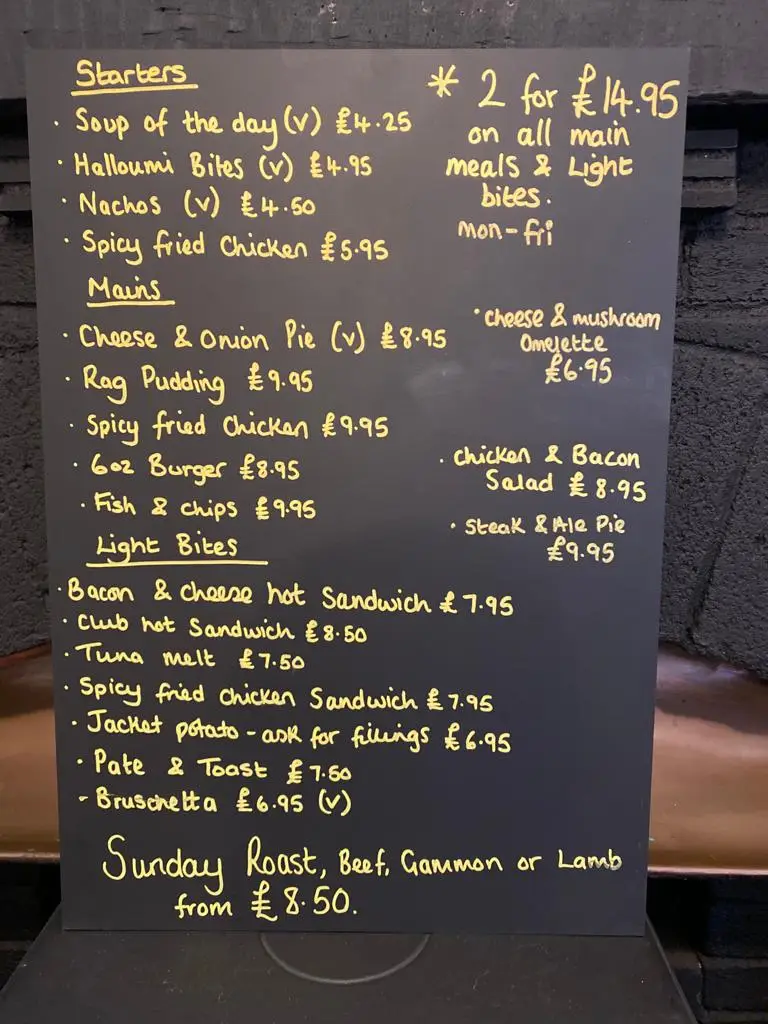 Starters
· Soup of the day (v) £4.25
· Halloumi Bites (v) £4.95
· Nachos (v) £4.50
· Spicy fried Chicken £5.95
* 2 for £14.95
on all main
meals & Light
bites.
mon-fri
Mains
· Cheese & Onion Pie (v) £8.95
· Rag Pudding £9.95
· Spicy fried Chicken £9.95
· 6oz Burger £8.95
· Fish & chips £9.95
· cheese & mushroom
Omelette
£6.95
· Chicken & Bacon
Salad £8.95
· Steak & Ale Pie
£9.95
Light Bites
· Bacon & cheese hot Sandwich £7.95
· Club hot Sandwich £8.50
· Tuna melt £7.50
· Spicy fried chicken Sandwich £7.95
· Jacket potato - ask for fillings £6.95
· Pate & Toast £7.50
- Bruschetta £6.95 (v)
Sunday Roast, Beef, Gammon or Lamb
from £8.50.